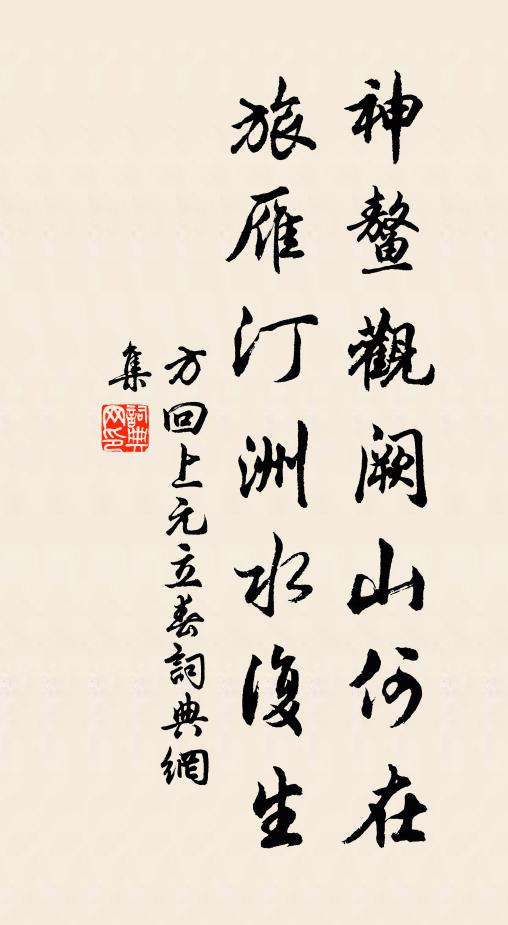 神鰲觀阙山何在
旅雁汀洲水復生
方回上元立春詞典網
集
詞典
网印